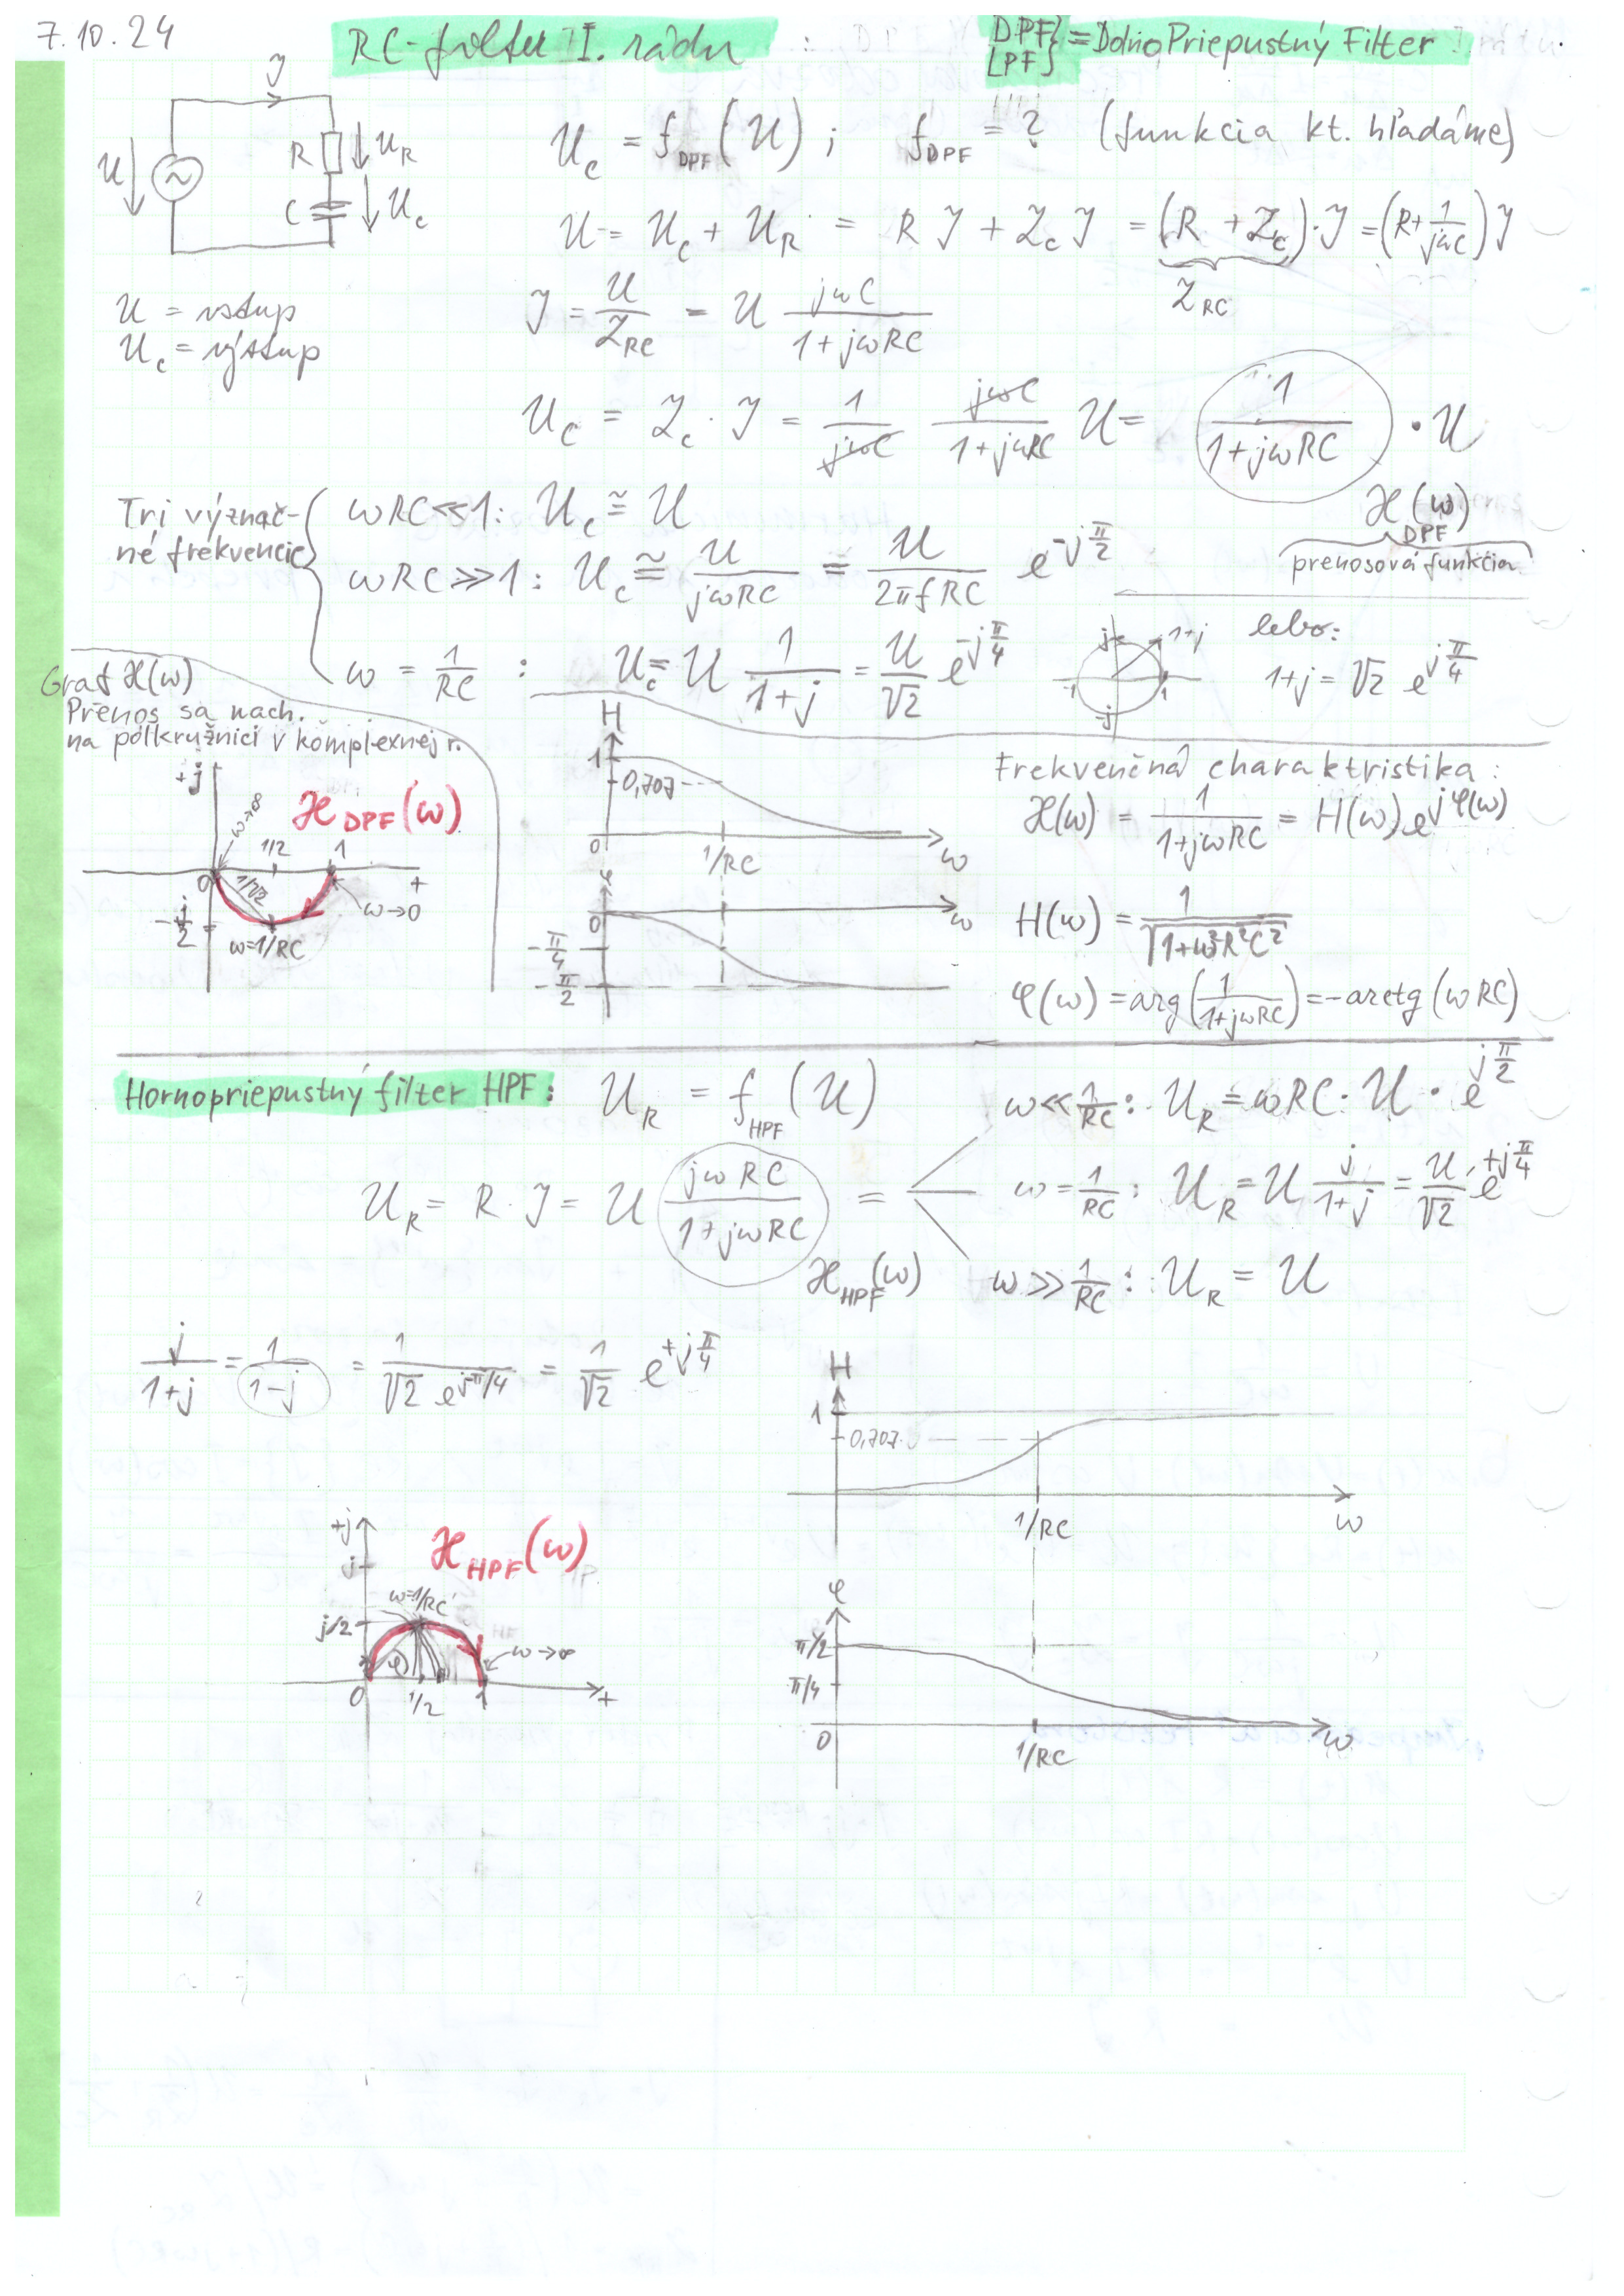 7.10.24
RC-filter I. rádu
DPF} = DolnoPriepustný Filter
LPF}
I
U R U_R C U_C
U_C = f_DPF(U) ; f_DPF = ? (funkcia kt. hľadáme)
U = U_C + U_R = R I + Z_C I = (R + Z_C)·I = (R + 1/jωC) I
Z_RC
U = vstup
U_C = výstup
I = U/Z_RC = U jωC/(1+jωRC)
U_C = Z_C · I = 1/jωC jωC/(1+jωRC) U = 1/(1+jωRC) · U
H_DPF(ω)
prenosová funkcia
Tri význač-
né frekvencie
ωRC ≪ 1 : U_C ≅ U
ωRC ≫ 1 : U_C ≅ U/jωRC = U/2πfRC e^-jπ/2
ω = 1/RC : U_C = U 1/(1+j) = U/√2 e^-jπ/4
j 1+j -1 1 -j
lebo:
1+j = √2 e^jπ/4
Graf H(ω)
Prenos sa nach.
na polkružnici v komplexnej r.
+j
H_DPF(ω)
ω→∞ 1/2 1
0 1/√2 + ω→0
-j/2 ω=1/RC
H
1
0,707
0 1/RC ω
φ
0 ω
-π/4
-π/2
Frekvenčná charaktristika :
H(ω) = 1/(1+jωRC) = H(ω) e^jφ(ω)
H(ω) = 1/√(1+ω²R²C²)
φ(ω) = arg(1/(1+jωRC)) = -arctg (ωRC)
Hornopriepustný filter HPF: U_R = f_HPF(U)
ω ≪ 1/RC : U_R = ωRC · U · e^jπ/2
U_R = R · I = U jωRC/(1+jωRC) =
ω = 1/RC : U_R = U j/(1+j) = U/√2 e^+jπ/4
H_HPF(ω)
ω ≫ 1/RC : U_R = U
j/(1+j) = 1/(1-j) = 1/(√2 e^jπ/4) = 1/√2 e^+jπ/4
H
1
0,707
1/RC ω
+j
H_HPF(ω)
j
ω=1/RC
j/2
φ ω→∞
0 1/2 1 +
φ
π/2
π/4
0 1/RC ω